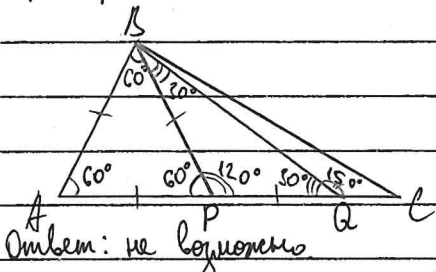 B
60° 30°
60° 60° 120° 30° 150°
A P Q C
Ответ: не возможно